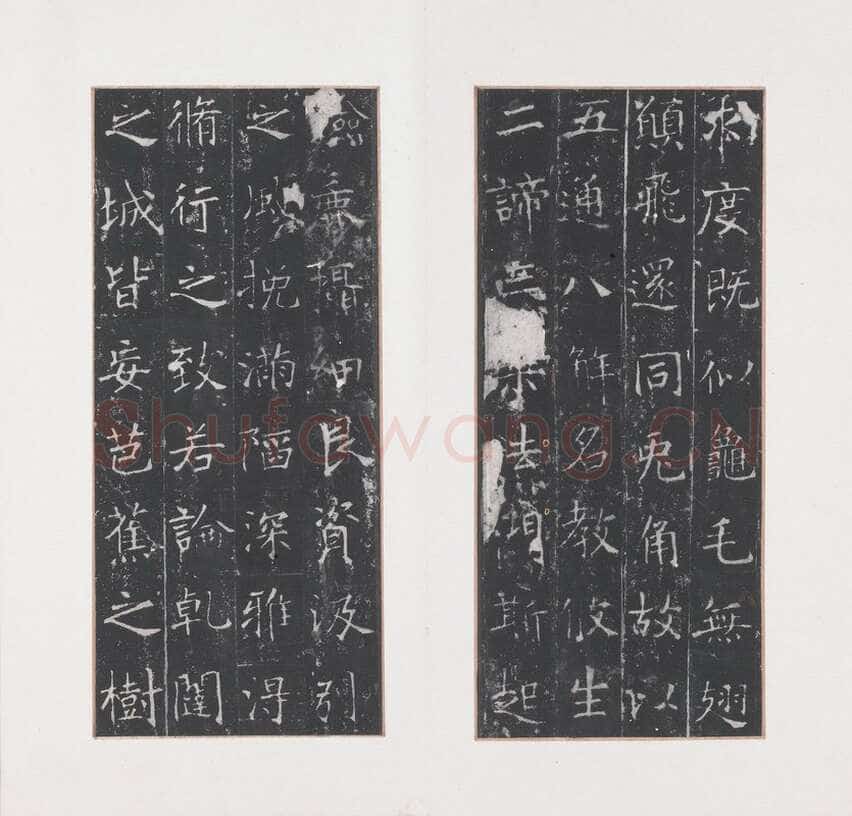 求度既似龜毛無翅
願飛還同兔角故以
五通八解名教攸生
二諦三乘法門斯起
麁細良資汲引
之風挽滿陷深雅得
脩行之致若論乹闥
之城皆妄芭蕉之樹
Shufawang.CN